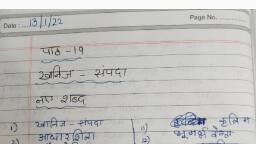 Date : 13/1/22 Page No.
पाठ - १९
खनिज - संपदा
नए शब्द
1) खनिज - संपदा 11) कृत्रिम
2) आधारशिला 12) भूगर्भ वेत्ता